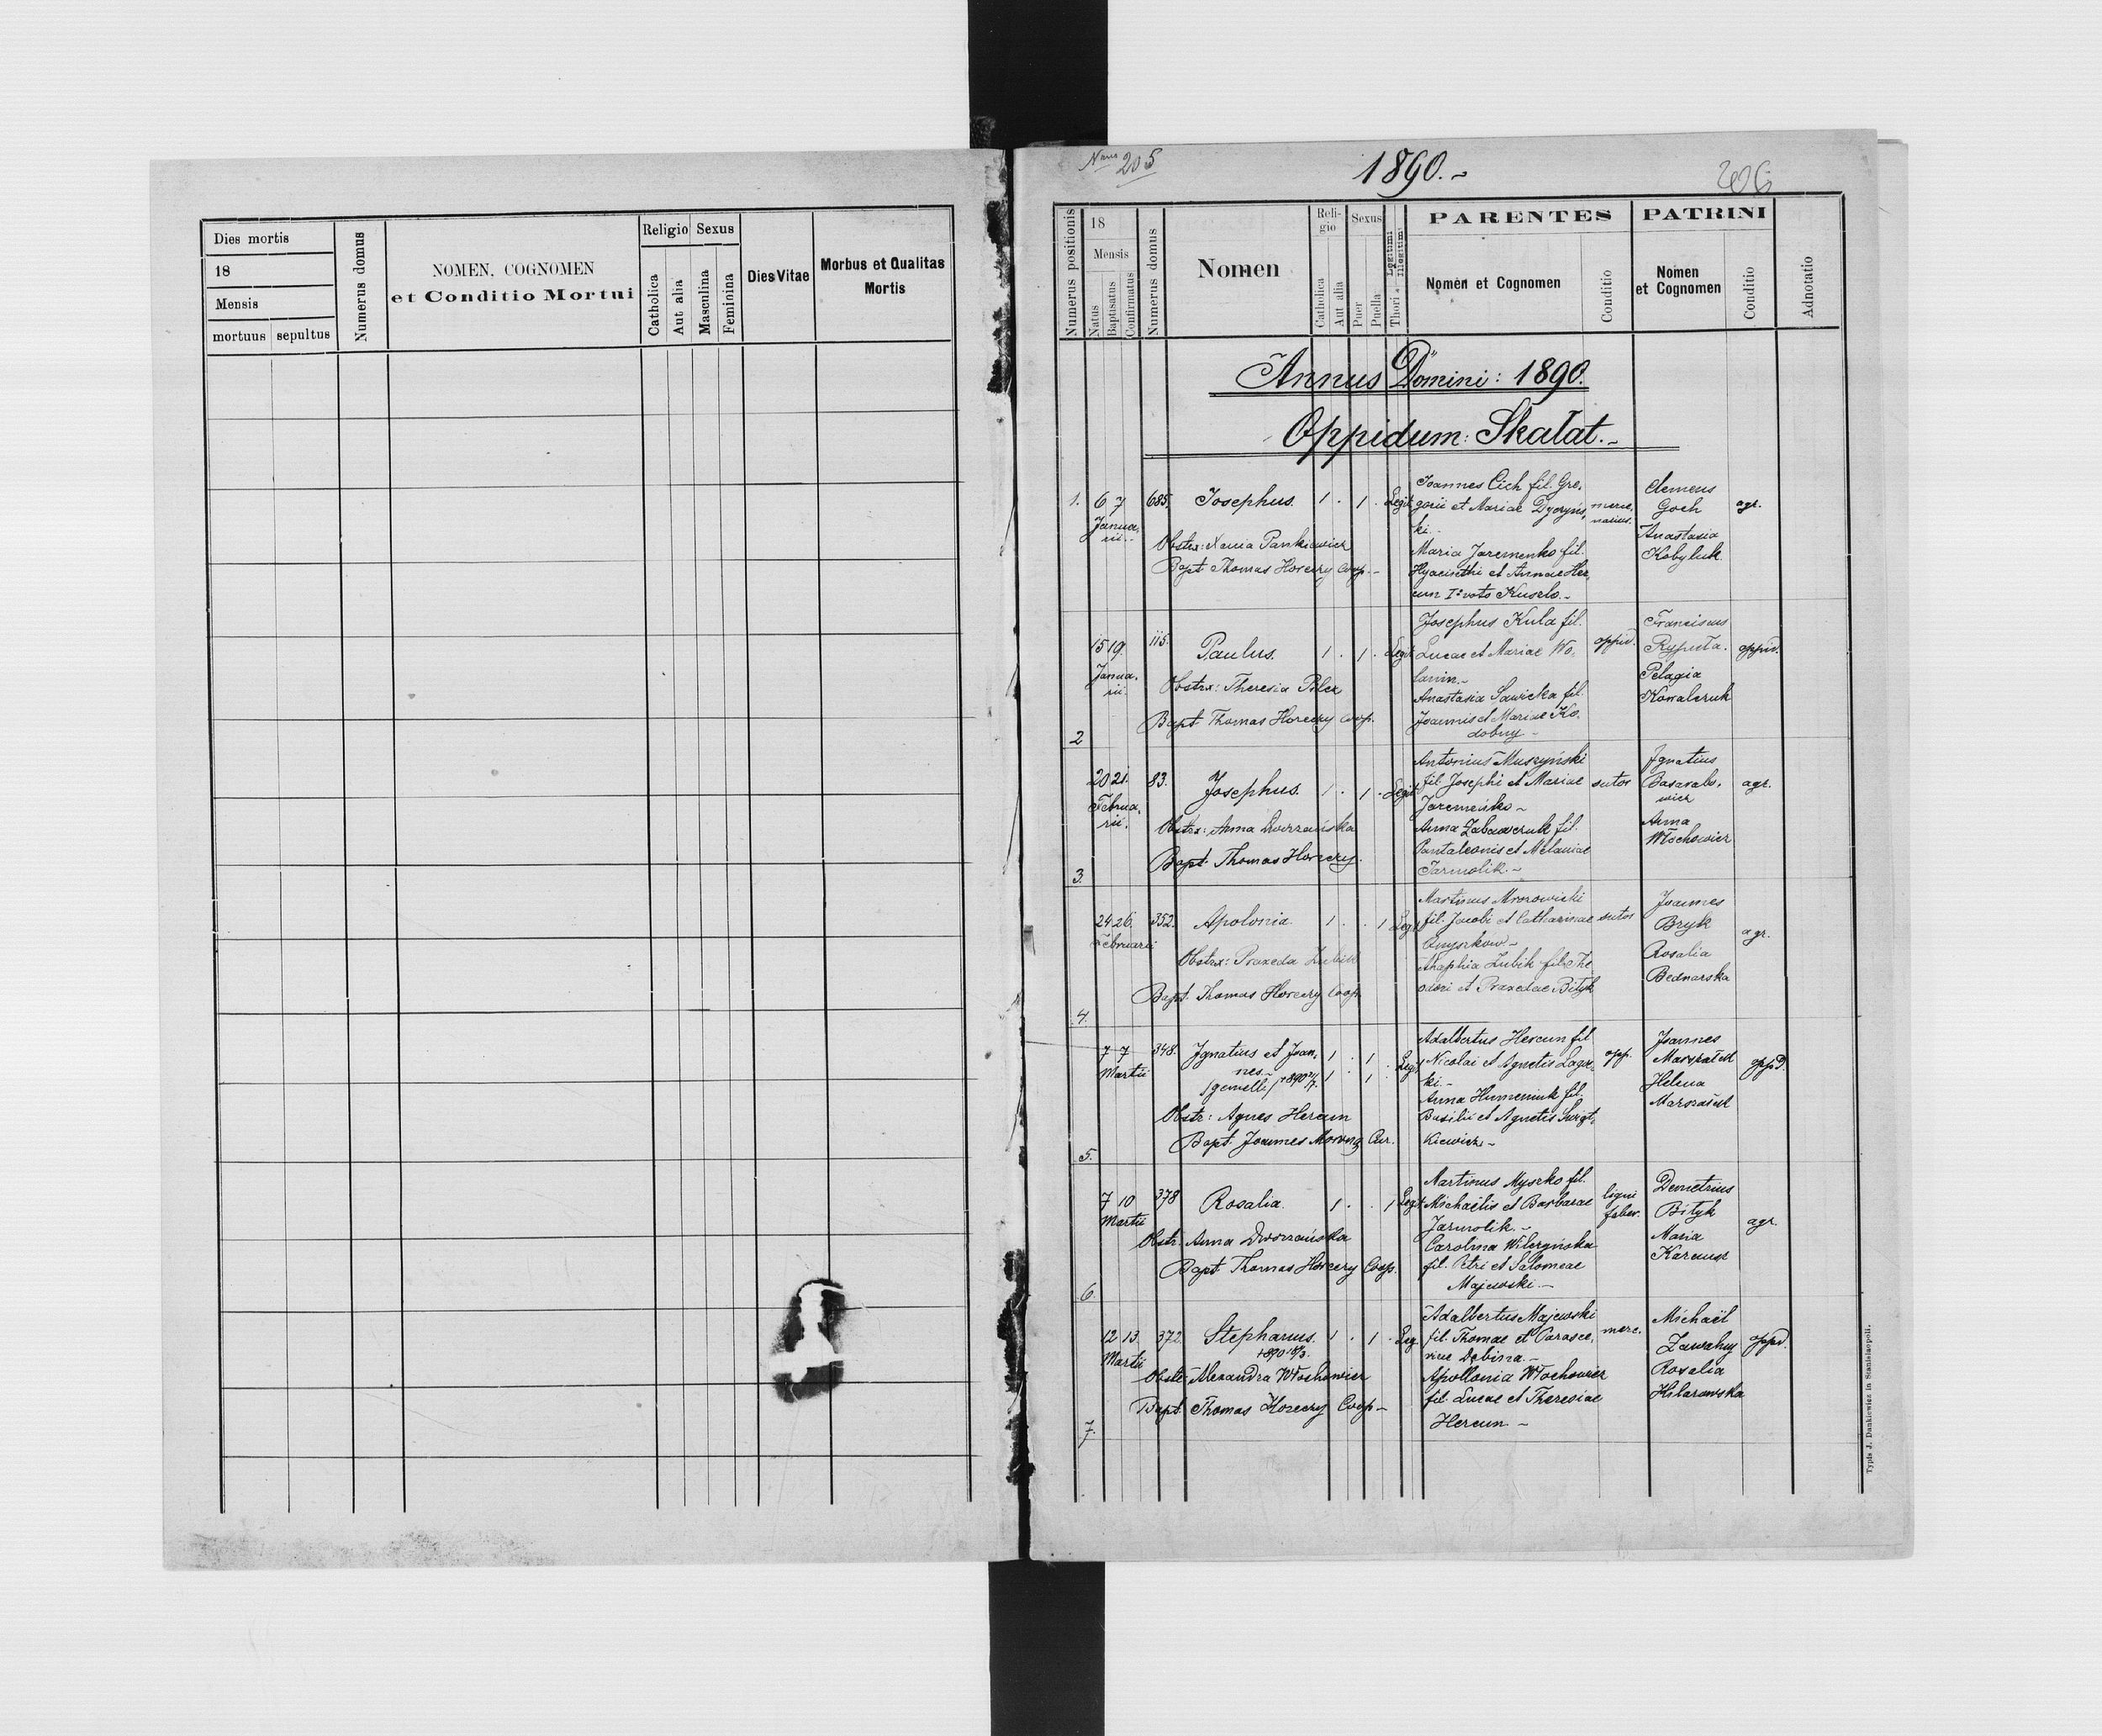 Dies mortis
18
Mensis
mortuus sepultus
Numerus domus
NOMEN, COGNOMEN
et Conditio Mortui
Religio Sexus
Catholica
Aut alia
Masculina
Feminina
Dies Vitae
Morbus et Qualitas
Mortis
205
1890.-
206
Numerus positionis
18
Mensis
Natus
Baptisatus
Confirmatus
Numerus domus
Nomen
Reli-
gio
Catholica
Aut alia
Sexus
Puer
Puella
Legitimi
Illegitimi
Thori
PARENTES
Nomen et Cognomen
Conditio
PATRINI
Nomen
et Cognomen
Conditio
Adnotatio
Annus Domini: 1890.
Oppidum: Skałat.-
1. 6 7 685. Josephus. 1 . 1 . Legit.
Janua,
rii.
Obstrx: Xenia Pankiewicz
Bapt. Thomas Horeczy Coop.-
Joannes Cich fil. Gre,
gorii et Mariae
ki.-
Maria Jaremenko fil.
Hyacinthi et Annae Her,
cun I° voto Kuszlo.-
merce,
narius.
Clemens
Goch
Anastasia
Kobyluk
agr.
2 15 19. 115. Paulus. 1 . 1 . Legit.
Janua,
rii.
Obstrx: Theresia
Bapt. Thomas Horeczy Coop.
Josephus Kula fil.
Lucae et Mariae Wo,
Anastasia Sawicka fil.
Joannis et Mariae Ko,
dobny -
oppid.
Franciscus
Pelagia
Kowalczuk
oppid.
3. 20 21. 83. Josephus. 1 . 1 . Legit.
Februa,
rii.
Obstrx: Anna Dworzańska
Bapt. Thomas Horeczy.
Antonius Muszyński
fil. Josephi et Mariae
Jaremenko -
Anna fil.
Pantaleonis et Melaniae
Jarmolik.-
sutor
Ignatius
Basarabo,
wicz
Anna
Włochowicz
agr.
4. 24 26. 352. Apolonia. 1 . . 1 Legit.
Februarii
Obstrx: Praxeda Zubik
Bapt. Thomas Horeczy Coop.
Martinus Mrozowicki
fil. Jacobi et Catharinae
Onyszkow.-
Zubik fil. The
odori et Praxedae Bityk
sutor
Joannes
Bryk
Rosalia
Bednarska
agr.
5. 7 7 348. Ignatius et Joan, 1 . 1 . Legit.
Martii
nes.- 1 1
/gemelli/
Obstr: Agnes Hercun
Bapt. Joannes Cur.
Adalbertus Hercun fil.
Nicolai et Agnetis
ki.-
Anna Humeniuk fil.
Basilii et Agnetis
kiewicz.-
opp.
Joannes
Marszałek
Helena
Marszałek
oppid.
6. 7 10 378 Rosalia. 1 . . 1 Legit.
Martii
Obstr. Anna Dworzańska
Bapt. Thomas Horeczy Coop.
Martinus Myszko fil.
Michaëlis et Barbarae
Jarmolik.-
Carolina Wilczyńska
fil. Petri et Salomeae
Majewski.-
ligni
faber.
Demetrius
Bityk
Maria
agr.
7. 12 13. 372. Stephanus. 1 . 1 . Leg.
Martii
Obstr: Alexandra Włochowicz
Bapt. Thomas Horeczy Coop -
Adalbertus Majewski
fil. Thomae et Parasce,
viae Dębina.-
Apollonia Włochowicz
fil. Lucae et Theresiae
Hercun -
merc.
Michaël
Rosalia
Hilarowska
oppid.
Typis J. Dankiewicz in Stanislaopoli.